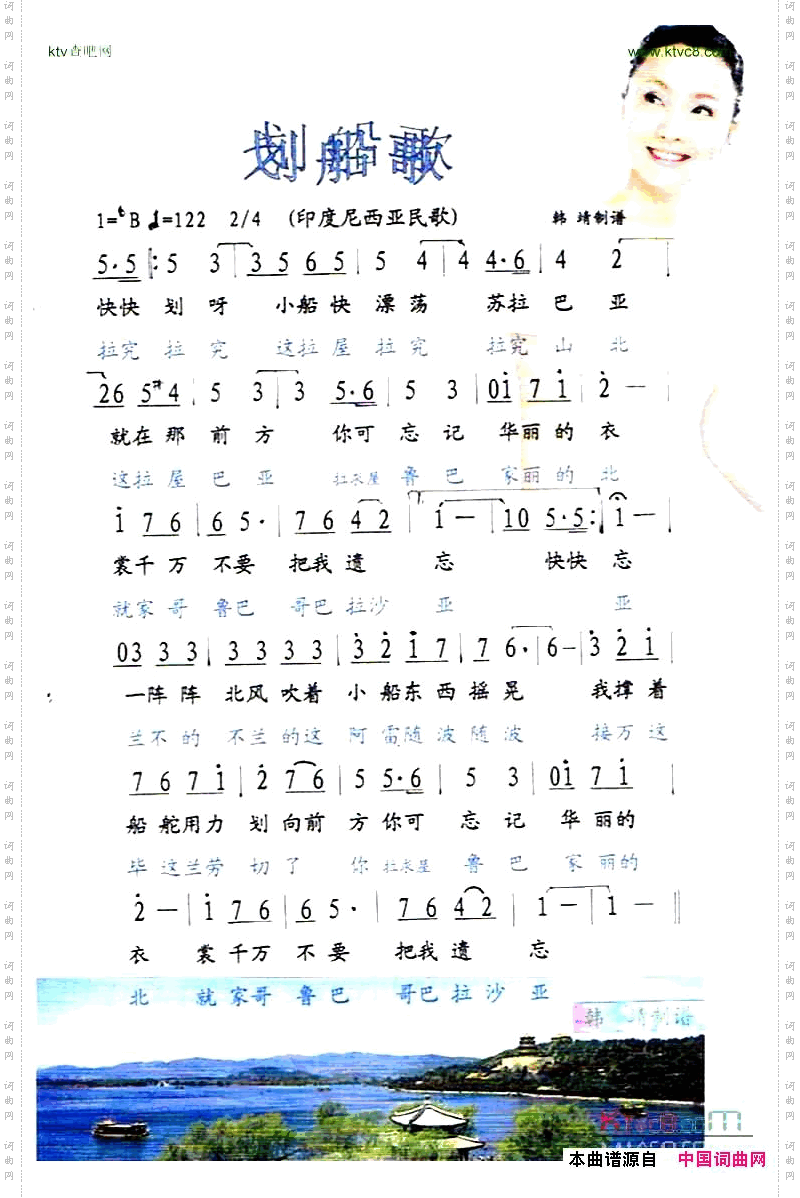 ktv查吧网
www.ktvc8.com
划船歌
1=ᵇB ♩=122 2/4 (印度尼西亚民歌) 韩 靖制谱
5·5 |: 5 3 | 3 5 6 5 | 5 4 | 4 4·6 | 4 2 |
快快 划 呀 小船 快 漂 荡 苏拉 巴 亚
拉究 拉 究 这拉 屋 拉 究 拉究 山 北
26 5#4 | 5 3 | 3 5·6 | 5 3 | 0i̇ 7 i̇ | 2̇ — |
就在 那 前 方 你可 忘 记 华丽 的 衣
这拉 屋 巴 亚 拉米屋 鲁 巴 家丽 的 北
i̇ 7 6 | 6 5· | 7 6 4 2 | 1 — | 10 5·5 :| 1 — |
裳千 万 不要 把我 遗 忘 快快 忘
就家 哥 鲁巴 哥巴 拉沙 亚 亚
03 3 3 | 3 3 3 3 | 3̇ 2̇ i̇ 7 | 7 6· | 6 — | 3̇ 2̇ i̇ |
一阵 阵 北风 吹着 小 船东 西 摇 晃 我撑 着
兰不 的 不兰 的这 阿 雷随 波 随 波 接万 这
7 6 7 i̇ | 2̇ 7 6 | 5 5·6 | 5 3 | 0i̇ 7 i̇ |
船 舵用力 划 向前 方 你可 忘 记 华 丽的
毕 这兰劳 切 了 你 拉米屋 鲁 巴 家 丽的
2̇ — | i̇ 7 6 | 6 5· | 7 6 4 2 | 1 — | 1 — ‖
衣 裳 千万 不 要 把我 遗 忘
北 就 家哥 鲁 巴 哥巴 拉 沙 亚
韩 靖制谱
Ktvc8.com
本曲谱源自 中国词曲网